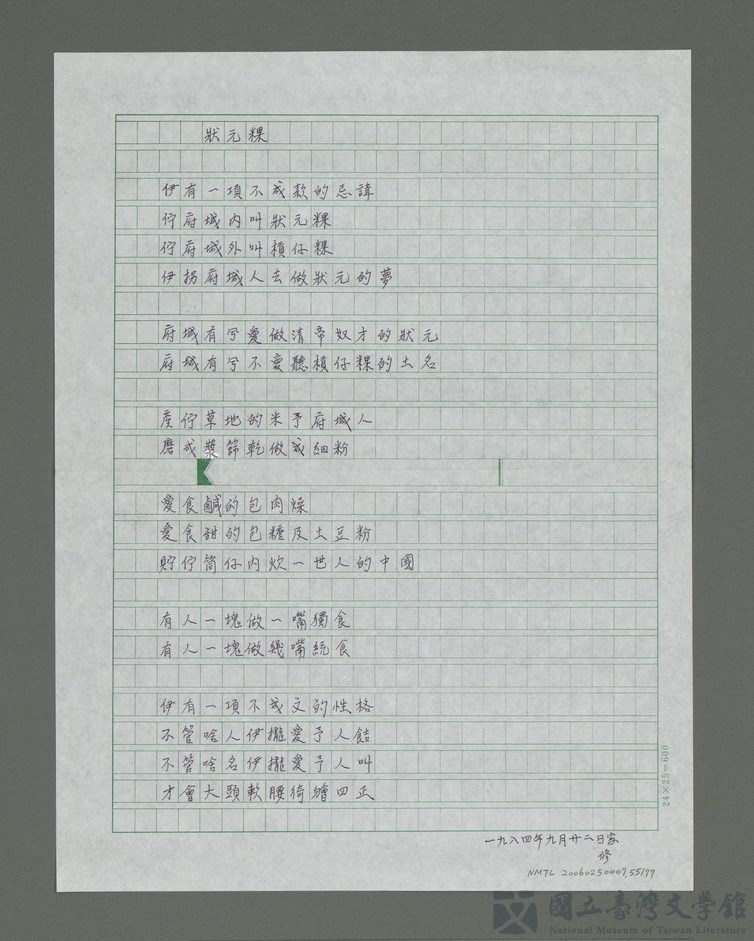 狀元粿
伊有一項不成款的忌諱
佇府城內叫狀元粿
佇府城外叫槓仔粿
伊拐府城人去做狀元的夢
府城有兮愛做清帝奴才的狀元
府城有兮不愛聽槓仔粿的土名
產佇草地的米予府城人
磨成漿篩乾做成細粉
愛食鹹的包肉燥
愛食甜的包糖及土豆粉
貯佇筒仔內炊一世人的中國
有人一塊做一嘴獨食
有人一塊做幾嘴統食
伊有一項不成文的性格
不管啥人伊攏愛予人飼
不管啥名伊攏愛予人叫
才會大頭軟腰徛繪四正
24×25=600
一九八四年九月廿二日寫
修
NMTL 20060250007.55/77
國立臺灣文學館
National Museum of Taiwan Literature